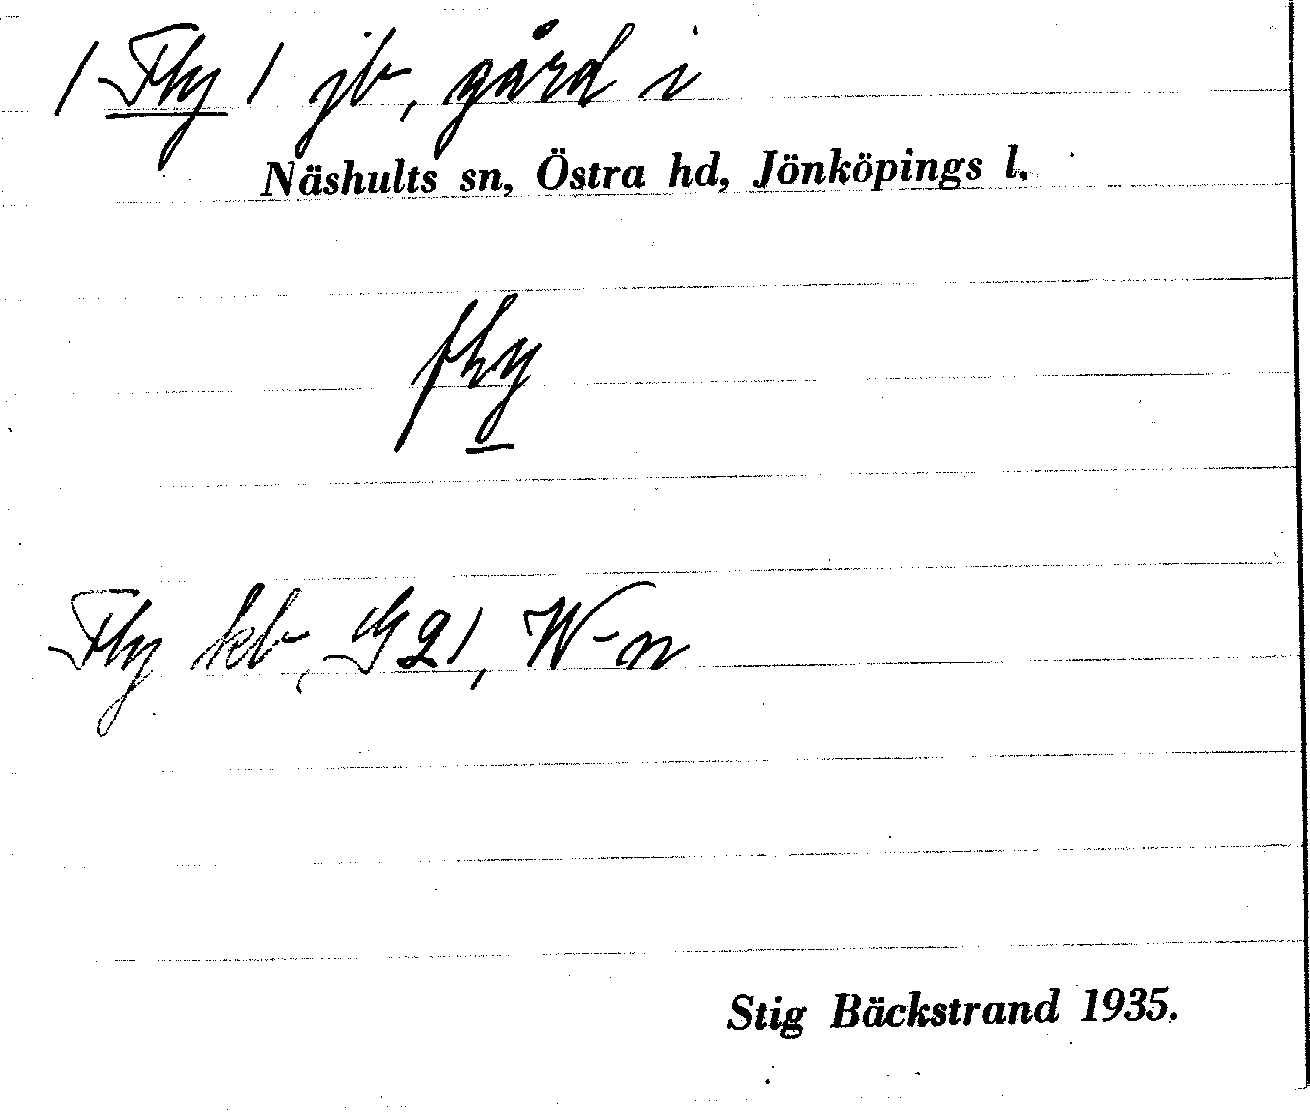 / Fly / jb, gård i
Näshults sn, Östra hd, Jönköpings l.
fly
Fly kb, G21, W-n
Stig Bäckstrand 1935.